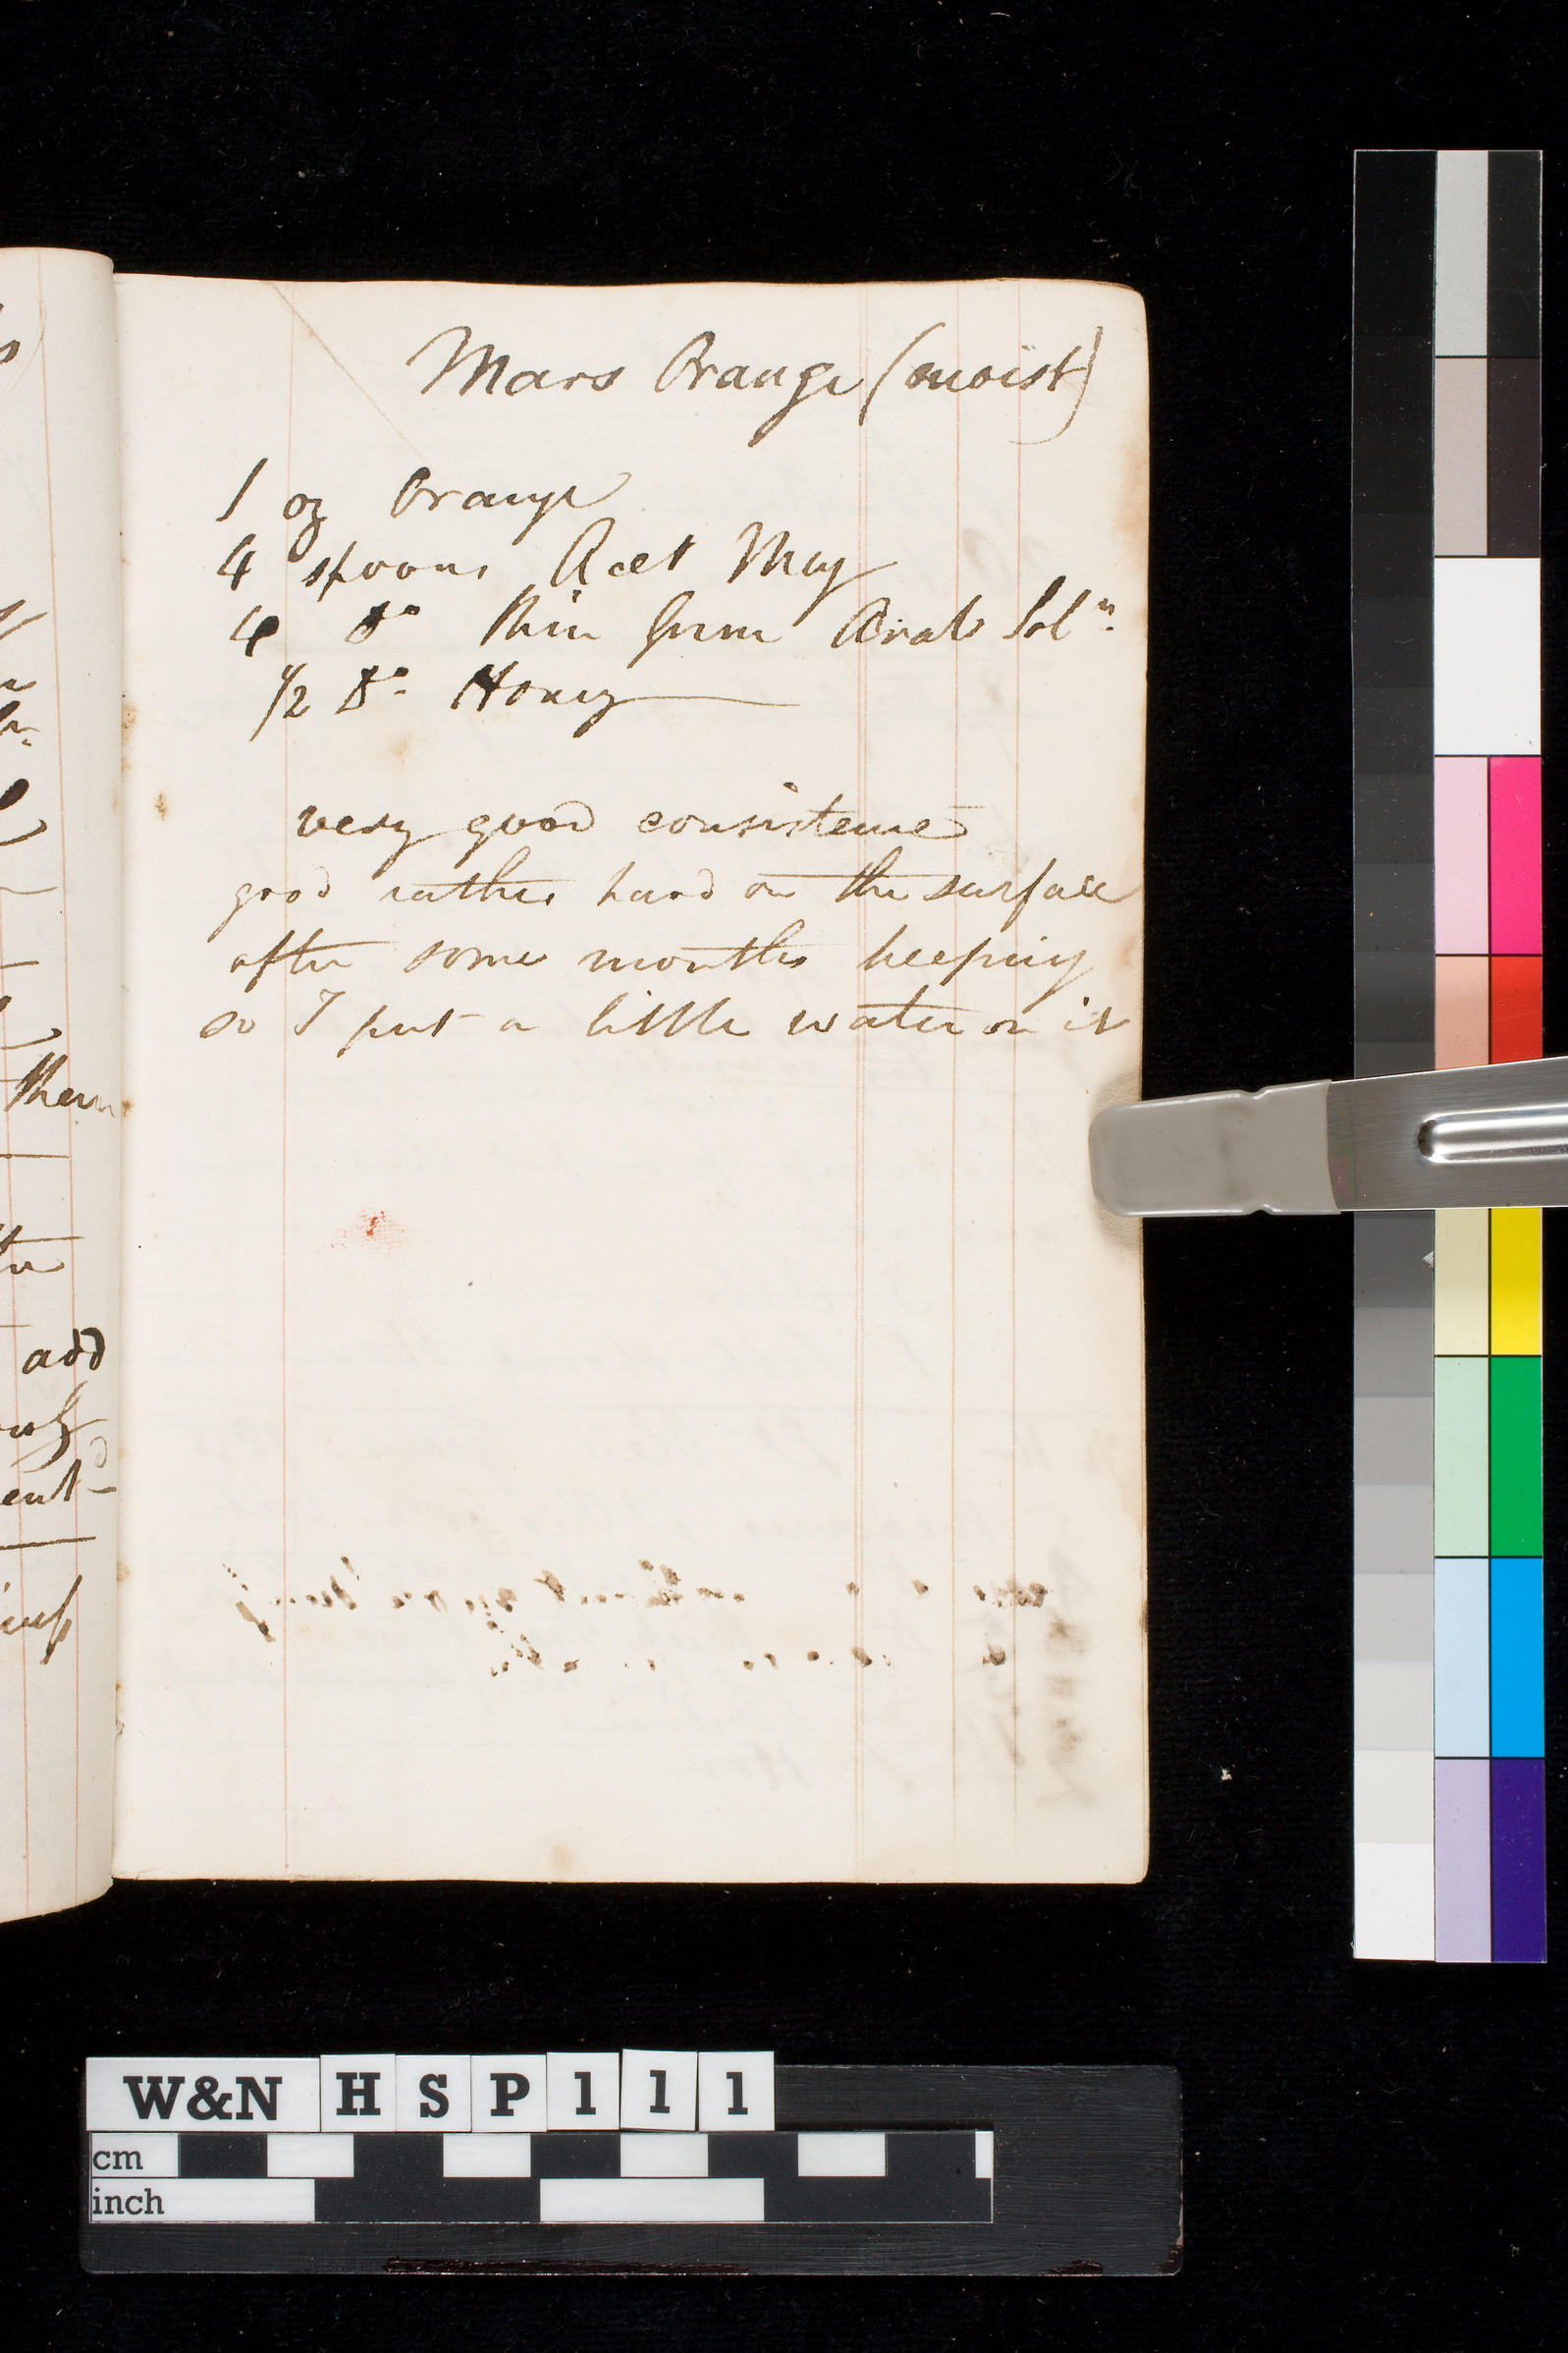 Mars Orange (moist)
1 oz Orange
4 spoons Acet Meg
4 Do thin Gum Arab Soln.
1/2 Do. Honey
very good consistence
good rather hard on the surface
after some months keeping
so I put a little water on it
them
add
W&N HSP111
cm
inch